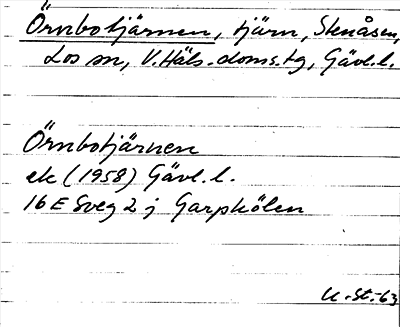 Örnbotjärnen, tjärn, Stenåsen,
Los sn, V. Häls. doms.tg, Gävl.l.
Örnbotjärnen
ek (1958) Gävl.l.
16 E Sveg 2 j Garpkölen
U. St. -63